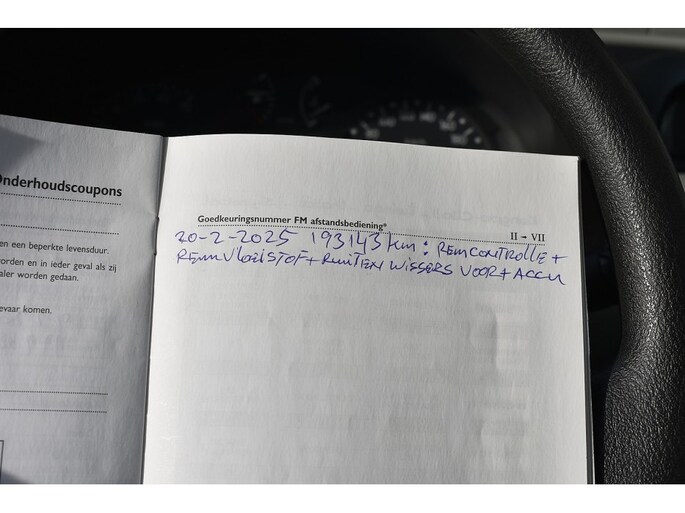 Onderhoudscoupons
en een beperkte levensduur.
orden en in ieder geval als zij
aler worden gedaan.
evaar komen.
Goedkeuringsnummer FM afstandsbediening*
II – VII
20-2-2025 193143 km: REMCONTROLLE +
REMVLOEISTOF + RUITEN WISSERS VOOR + ACCU